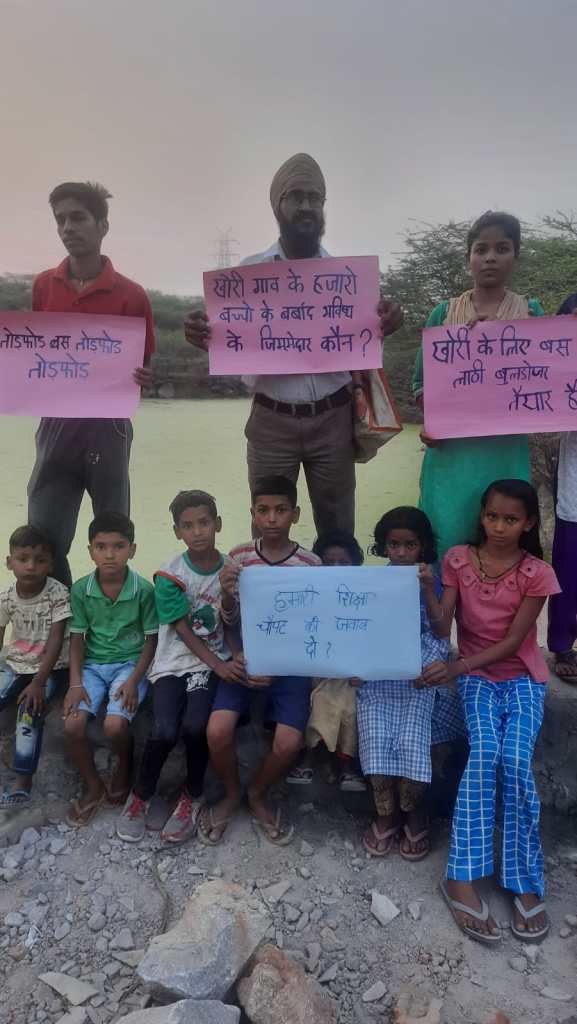 तोडफोड बस तोड़फोड़
तोड़फोड़
खोरी गाव के हजारो
बच्चो के बर्बाद भविष्य
के जिम्मेदार कौन ?
खोरी के लिए बस
लाठी बुलडोजर
तैयार है
हमारी शिक्षा
चौपट की जवाब
दो ?